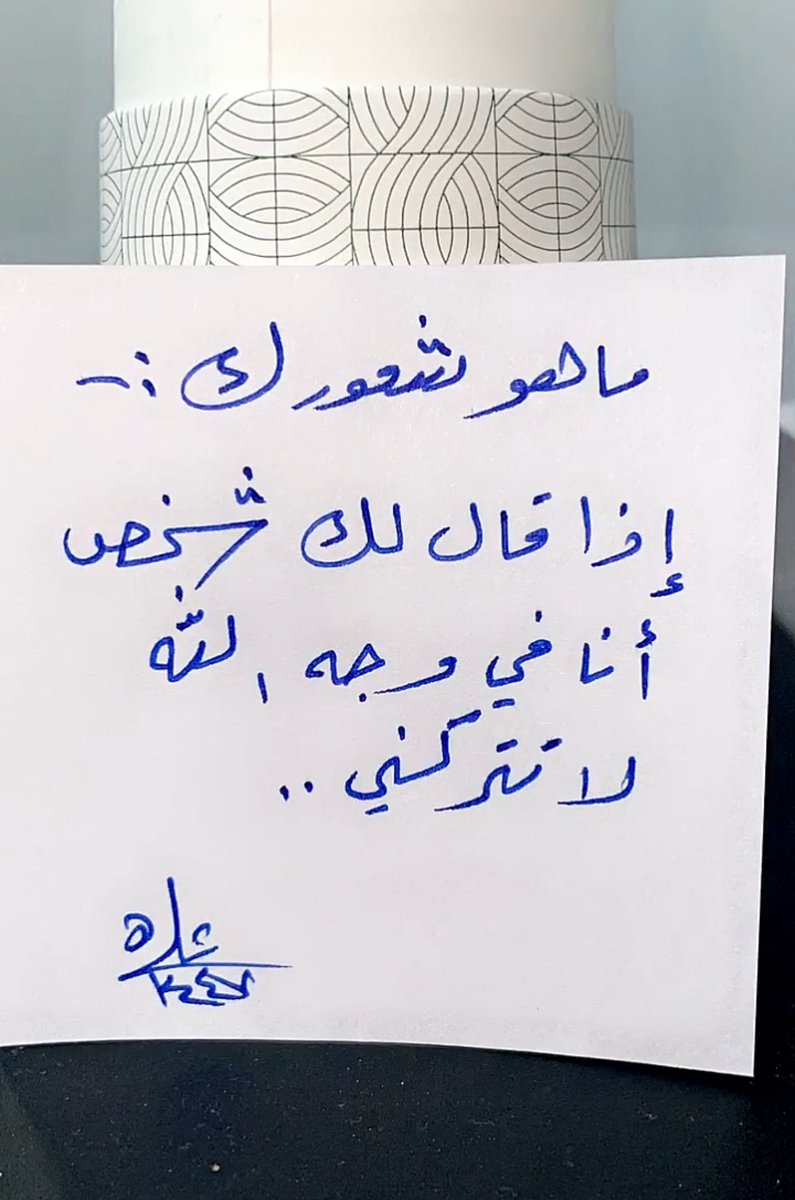 ما هو شعورك :-
إذا قال لك شخص
أنا في وجه الله
لا تتركني ..